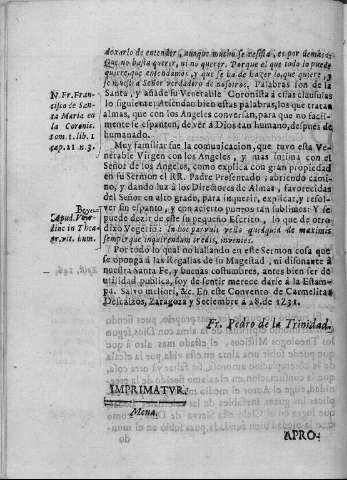 dexarlo de entender, aunque mucho se resista, es por demás:
Que no basta querer, ni no querer. Porque el que todo lo puede
quiere, que entendamos, y que se ha de hazer lo que quiere, y
se muestra Señor verdadero de nosotros. Palabras son de la
Santa, y añade su Venerable Coronista á estas clausulas
lo siguiente: Atiendan bien estas palabras, los que tratan
almas, que con los Angeles conversan, para que no facil-
mente se espanten, de ver á Dios tan humano, despues de
humanado.
N. Fr. Fran-
cisco de San-
ta Maria en
la Coronic.
tom. 1. lib. 1
cap. 21 n. 3.
Muy familiar fue la comunicacion, que tuvo esta Ve-
nerable Virgen con los Angeles, y mas intima con el
Señor de los Angeles, como explica con gran propiedad
en su Sermon el RR. Padre Presentado, abriendo cami-
no, y dando luz á los Directores de Almas, favorecidas
del Señor en alto grado, para inquerir, explicar, y resol-
ver sin espanto, y con acierto puntos tan sublimes: Y se
puede dezir de este su pequeño Escrito, lo que de otro
dixo Vegerio: In hoc parvuli
de maximis
semper que inquirendum
invenies.
Por todo lo qual no hallando en este Sermon cosa que
se oponga á las Regalias de su Magestad, ni disonante á
nuestra Santa Fe, y buenas costumbres, antes bien de ser
utilidad publica, soy de sentir merece darle á la Estam-
pa. Salvo meliori, &c. En este Convento de Carmelitas
Descalzos, Zaragoza y Setiembre á 28. de 1731.
Fr. Pedro de la Trinidad.
IMPRIMATUR.
Mena.
APRO-